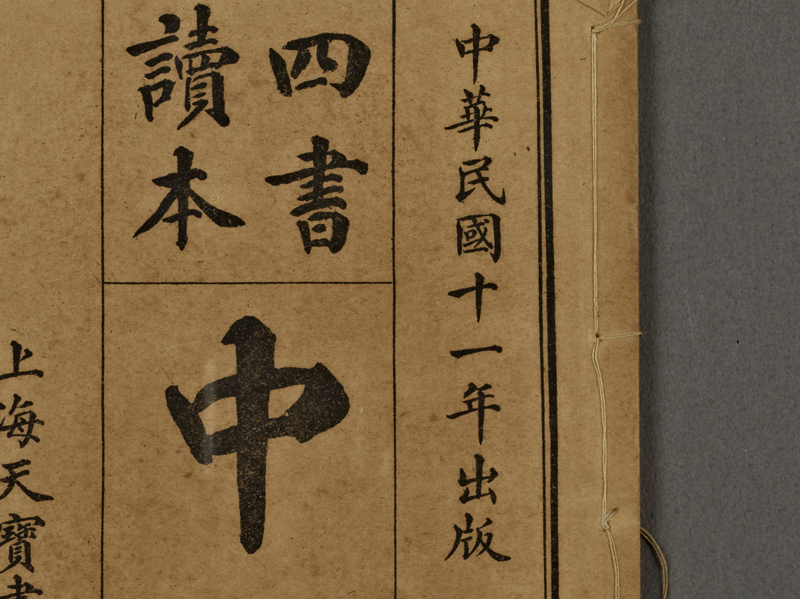 中華民國十一年出版
四書
讀本
中
上海天寶書